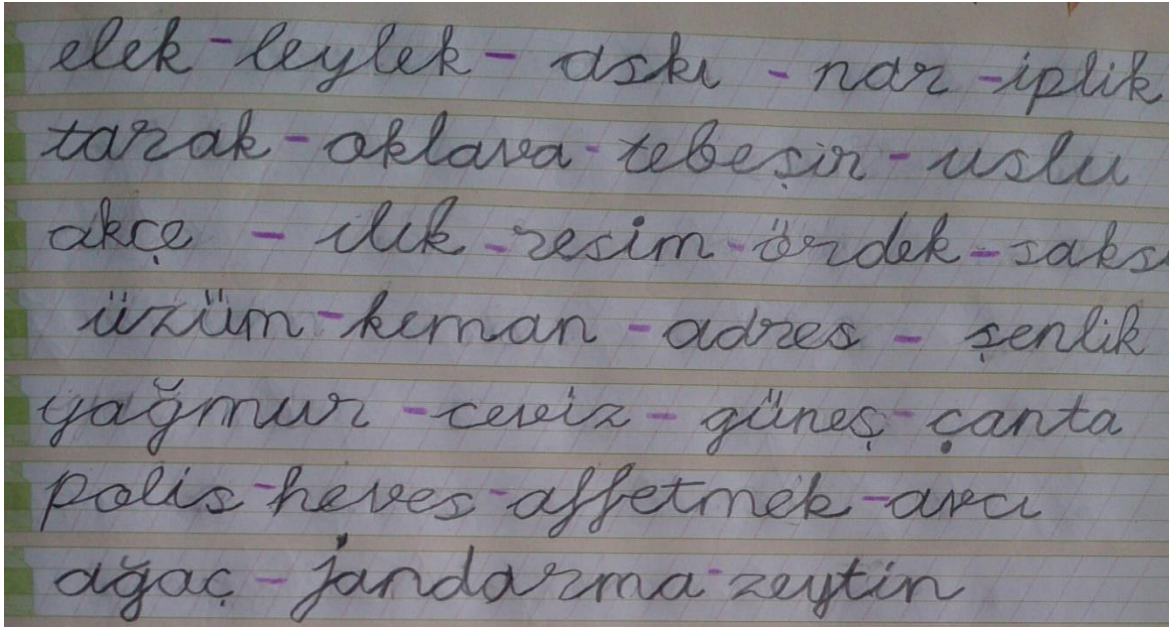 elek - leylek - askı - nar - iplik
tarak - oklava - tebeşir - uslu
akçe - ılık - resim - ördek - saks
üzüm - keman - adres - şenlik
yağmur - ceviz - güneş - çanta
polis - heves - affetmek - avcı
ağaç - jandarma - zeytin